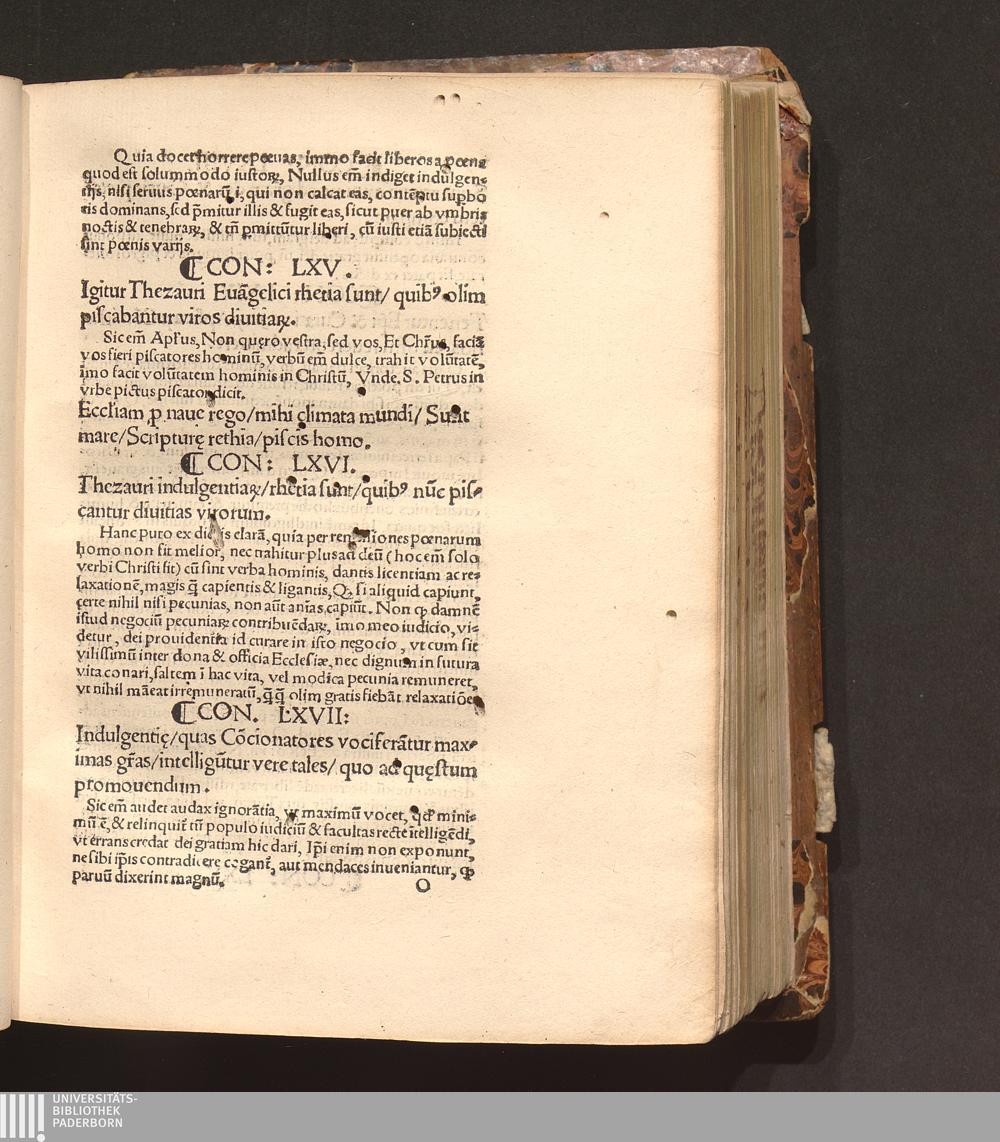 Quia docet horrere pœnas, immo facit liberos a pœna
quod est solummodo iustoꝝ, Nullus em̄ indiget indulgen⸗
tijs, nisi seruus pœnarū, i, qui non calcat eas, contēptu supbo
eis dominans, sed p̄mitur illis & fugit eas, sicut puer ab vmbris
noctis & tenebraꝝ, & tn̄ pmittūtur liberi, cū iusti etiā subiecti
sint pœnis varijs.
⸿CON: LXV.
Igitur Thezauri Euāgelici rhetia sunt/ quibꝰ olim
piscabantur viros diuitiaꝝ.
Sic em̄ Apłus, Non quęro vestra, sed vos, Et Chr̄us, faciā
vos fieri piscatores hominū, verbū em̄ dulce, trahit volūtatē,
imo facit volūtatem hominis in Christū, Vnde. S. Petrus in
vrbe pictus piscator dicit.
Eccliam ꝓ naue rego/mihi climata mundi/ Sunt
mare/Scripturę rethia/piscis homo.
⸿CON: LXVI.
Thezauri indulgentiaꝝ/rhetia sunt/quibꝰ nūc pis⸗
cantur diuitias virorum.
Hanc puto ex dictis clarā, quia per remissiones pœnarum
homo non fit melior, nec trahitur plus ad deū (hoc em̄ solo
verbi Christi fit) cū sint verba hominis, dantis licentiam ac re⸗
laxationē, magis q̄ capientis & ligantis, Qꝫ si aliquid capiunt,
certe nihil nisi pecunias, non aūt anīas capiūt. Non ꝙ damnē
istud negociū pecuniaꝝ contribuēdaꝝ, imo meo iudicio, vi⸗
detur, dei prouidentia id curare in isto negocio, vt cum sit
vilissimū inter dona & officia Ecclesiæ, nec dignum in futura
vita conari, saltem ī hac vita, vel modica pecunia remuneret,
vt nihil māeat irremuneratū, q̄q̄ olim gratis fiebāt relaxatiōes
⸿CON. LXVII:
Indulgentię/quas Cōcionatores vociferātur max⸗
imas gr̄as/intelligūtur vere tales/ quo ad quęstum
promouendum.
Sic em̄ audet audax ignorātia, vt maximū vocet, qđ mini⸗
mū ē, & relinquit̄ tn̄ populo iudiciū & facultas recte ītelligēdi,
vt errans credat dei gratiam hic dari, Ip̄i enim non exponunt,
ne sibi ip̄is contradicere cogant̄, aut mendaces inueniantur, ꝙ
paruū dixerint magnū.
O
UNIVERSITÄTS-
BIBLIOTHEK
PADERBORN